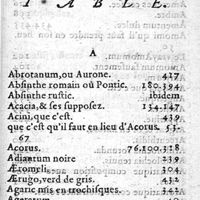 TABLE.
A
Abrotanum, ou Aurone. 437
Absinthe romain où Pontic. 380.394
Absinthe rustic. ibidem
Acacia, & ses supposez. 134.147
Acini, que c'est. 439
que c'est qu'il faut en lieu d'Acorus. 53.
67
Acorus. 76.100.128
Adiantum noire 239
Æromeli. 304
Ærugo, verd de gris. 441
Agaric mis en trochisques. 142